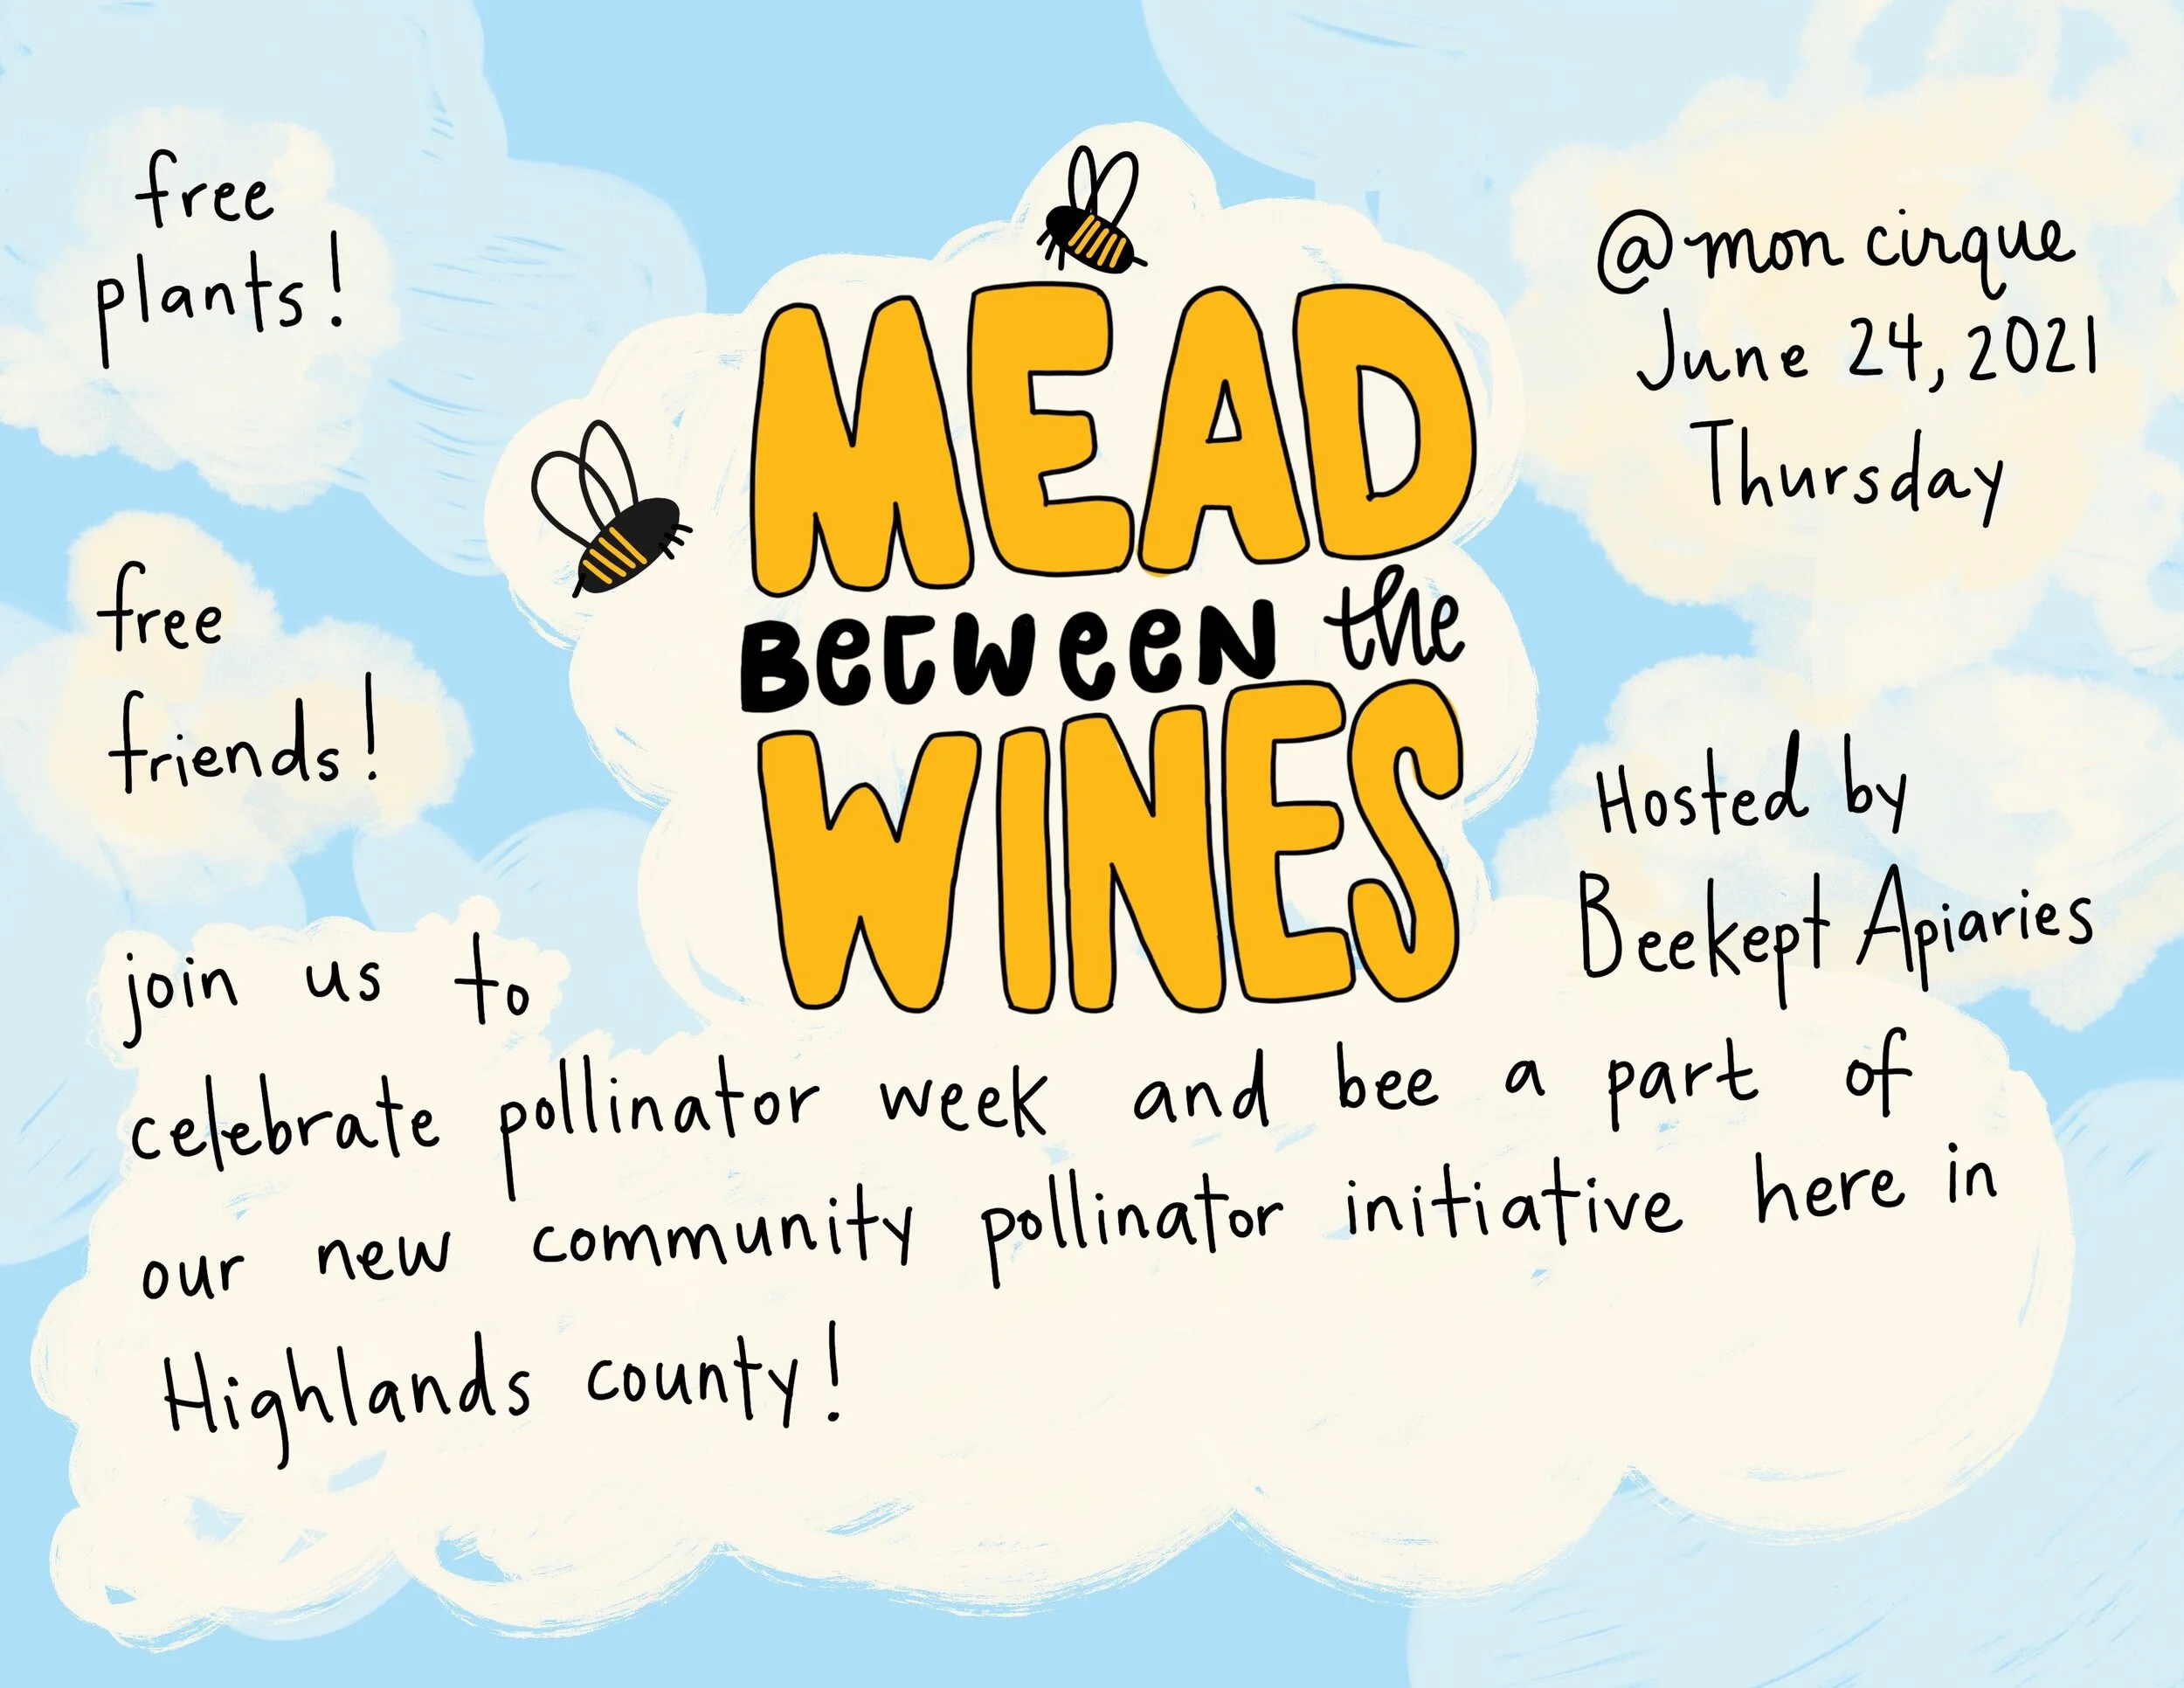 free
plants!
free
friends!
MEAD
BETWEEN the
WINES
@mon cirque
June 24, 2021
Thursday
Hosted by
Beekept Apiaries
join us to
celebrate pollinator week and bee a part of
our new community pollinator initiative here in
Highlands county!